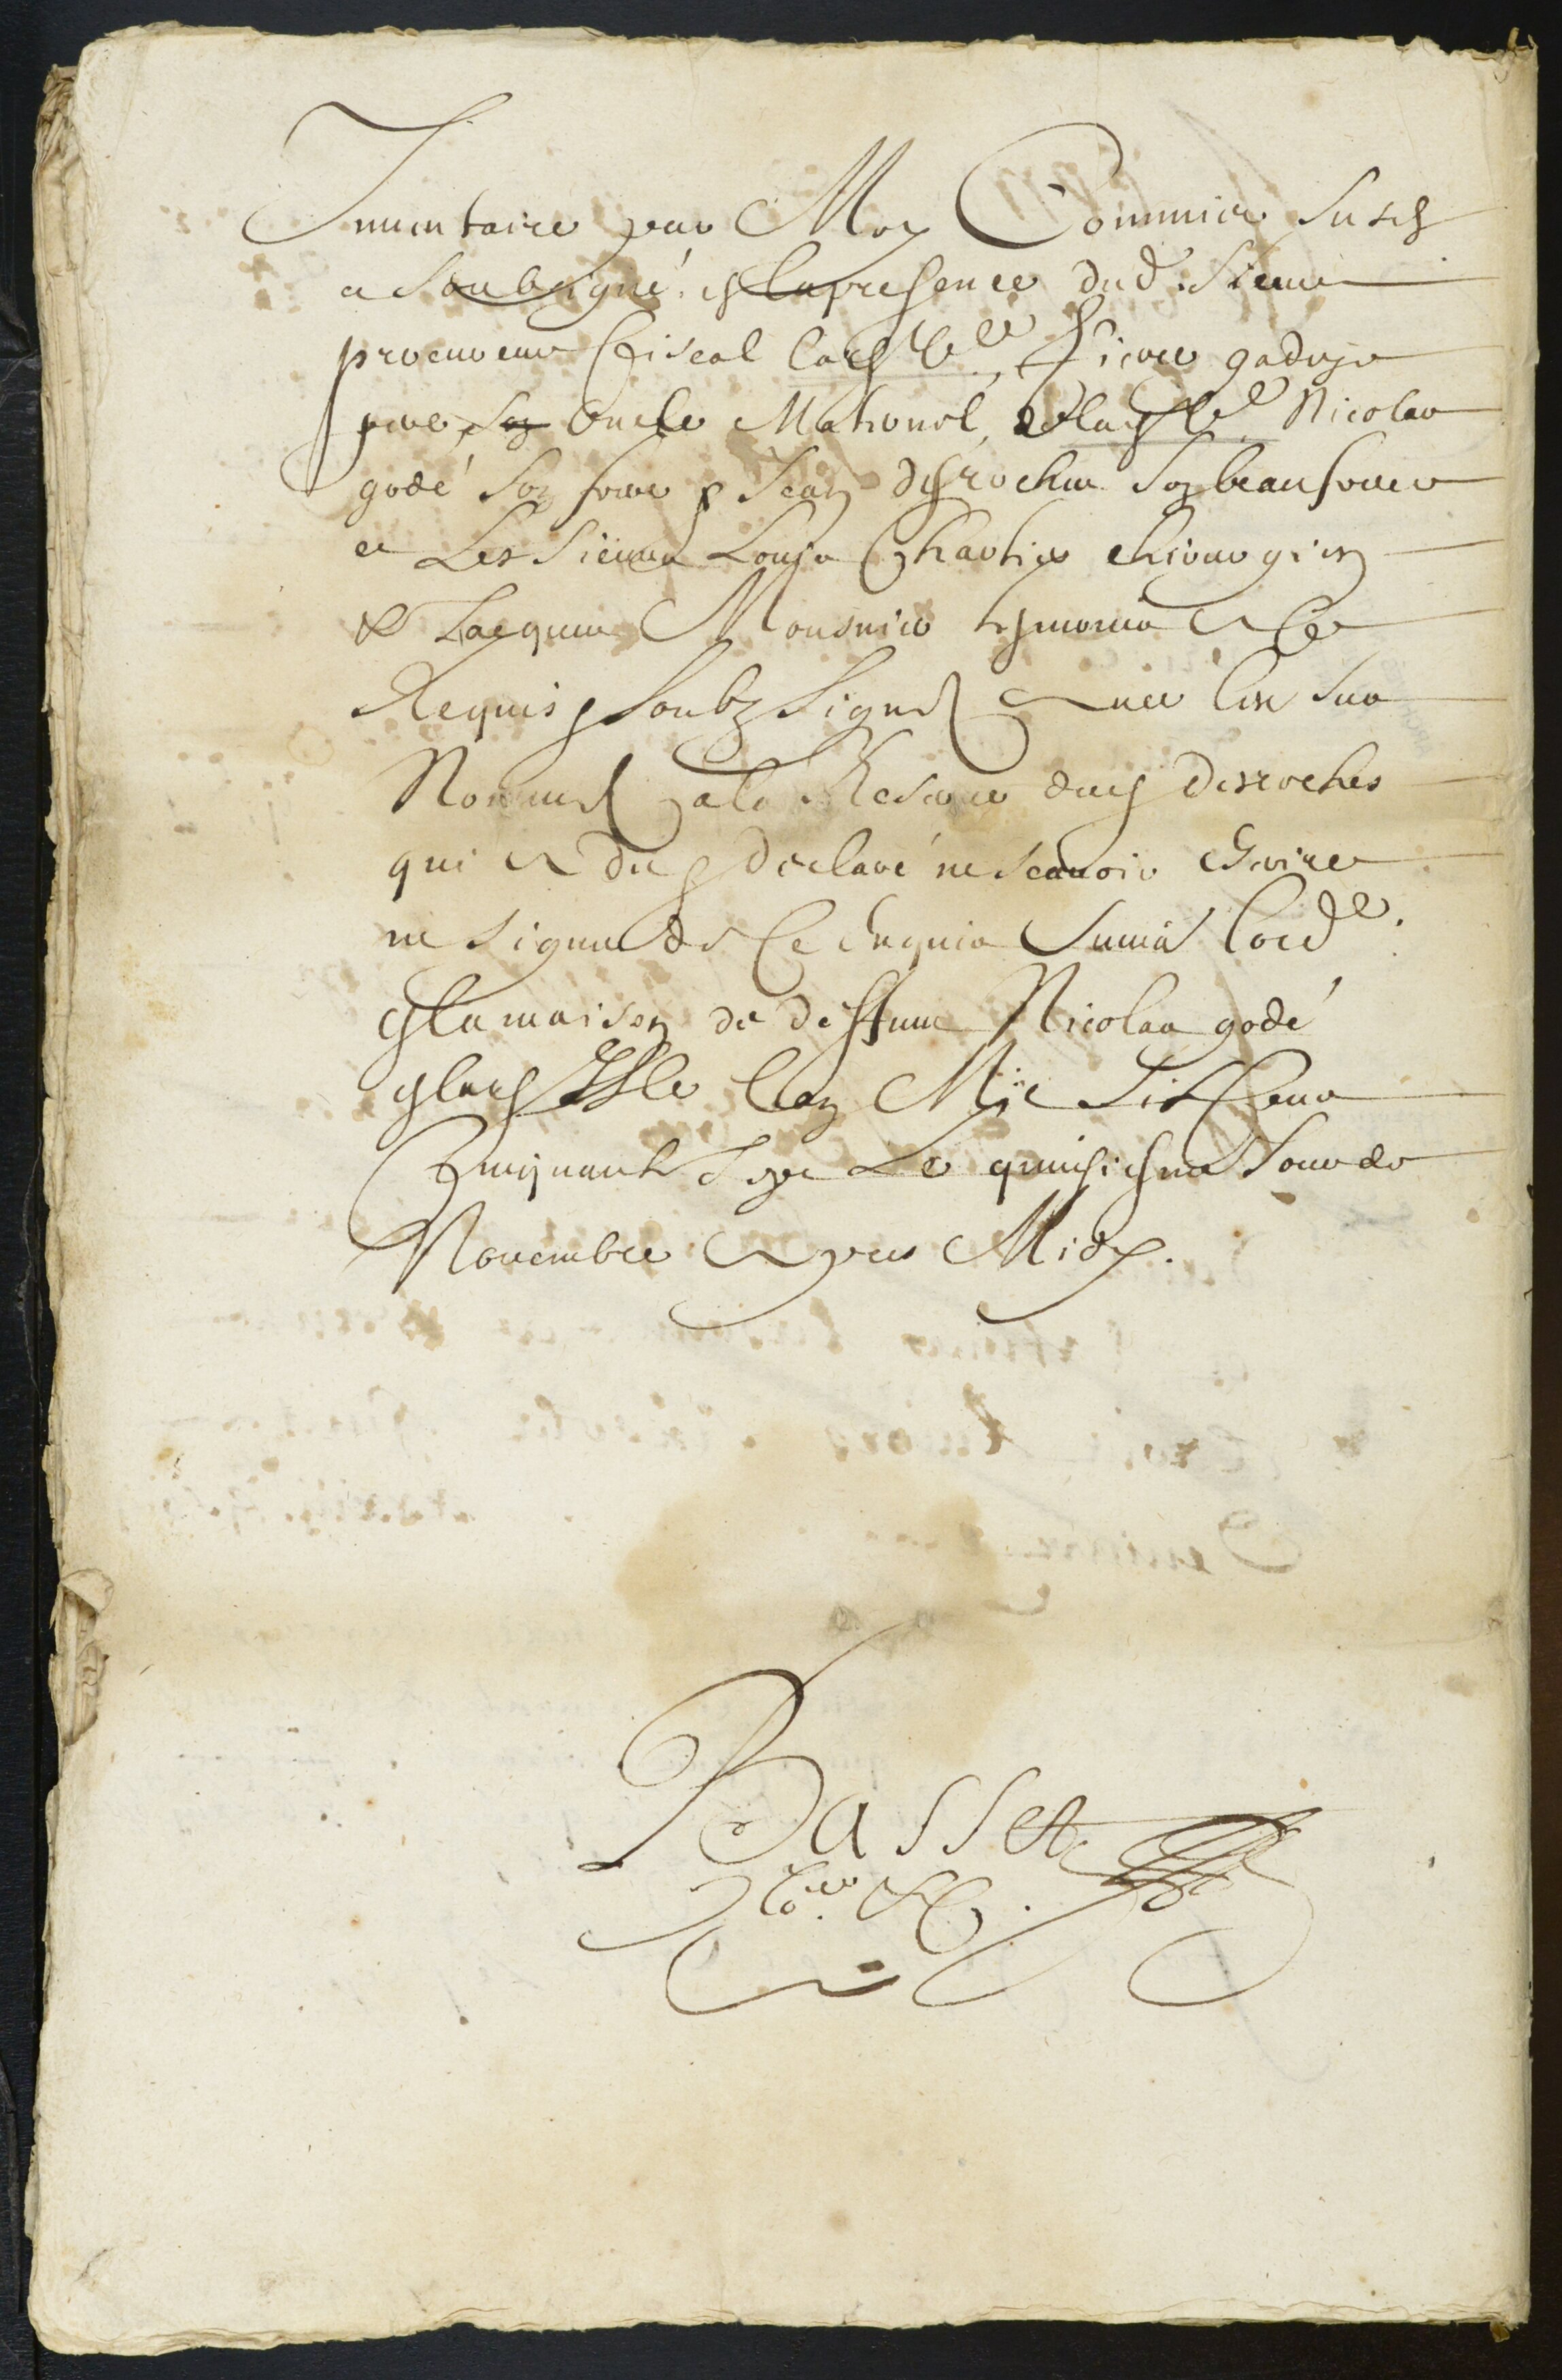 Inuentaire par Moy Commis susd
a soubsigné. En la presence dud. Sieur
procureur fiscal Lad. Vefue, Pierre gadoys
pere, son oncle Maternel, de lad. Vefue Nicolas
godé son frere & Jean desroches son beaufrere
et Les Sieurs Louis Chartier chirurgien
& Jacques Mousnier tesmoins A Ce
Requis & soubzsignez Auec Les sus
Nommez a la Reserue dud desroches
qui A dit & declaré ne scauoir escrire
ne signer de Ce enquis suiuant Lord.ce
En la maison de deffunt Nicolas godé
En lad Isle L'an Mil Six Cens
Cinquante Sept Le quinsiesme Jour de
Novembre Apres Midy.
Basset